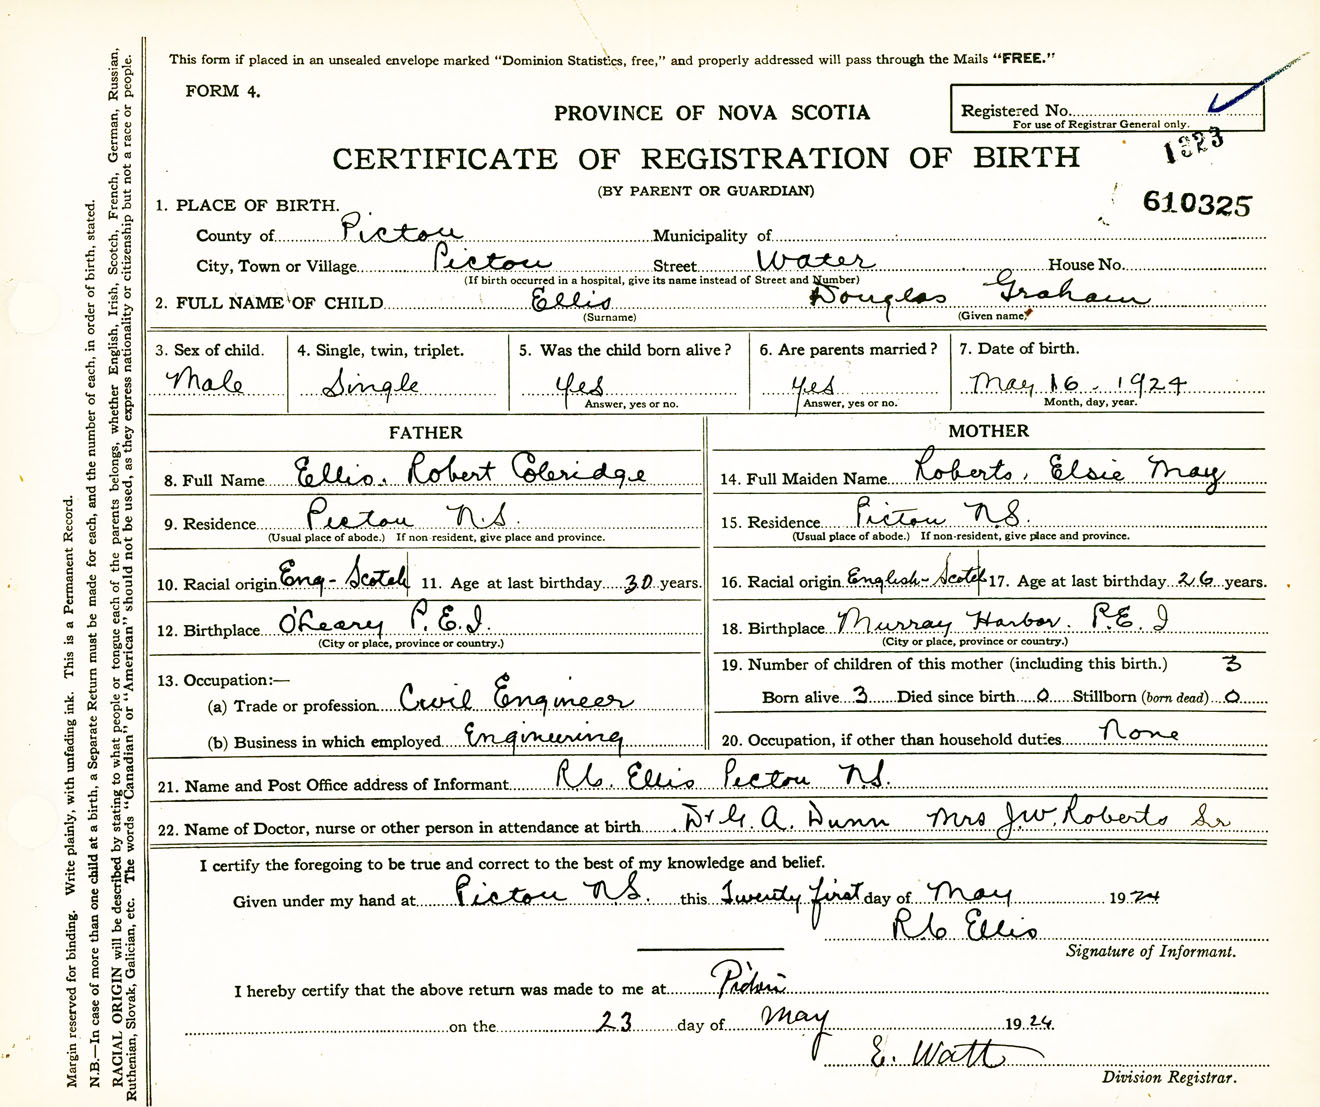 This form if placed in an unsealed envelope marked “Dominion Statistics, free,” and properly addressed will pass through the Mails “FREE.”
FORM 4.
PROVINCE OF NOVA SCOTIA
Registered No.
For use of Registrar General only.
1323
CERTIFICATE OF REGISTRATION OF BIRTH
(BY PARENT OR GUARDIAN)
610325
1. PLACE OF BIRTH.
County of Pictou Municipality of
City, Town or Village Pictou Street Water House No.
(If birth occurred in a hospital, give its name instead of Street and Number)
2. FULL NAME OF CHILD Ellis Douglas Graham
(Surname) (Given name)
3. Sex of child. 4. Single, twin, triplet. 5. Was the child born alive? 6. Are parents married? 7. Date of birth.
Male Single Yes Yes May 16 - 1924
Answer, yes or no. Answer, yes or no. Month, day, year.
FATHER
8. Full Name Ellis, Robert Coleridge
9. Residence Pictou N.S.
(Usual place of abode.) If non resident, give place and province.
10. Racial origin Eng - Scotch 11. Age at last birthday 30 years.
12. Birthplace O'Leary P.E.I.
(City or place, province or country.)
13. Occupation:—
(a) Trade or profession Civil Engineer
(b) Business in which employed Engineering
MOTHER
14. Full Maiden Name Roberts, Elsie May
15. Residence Pictou N.S.
(Usual place of abode.) If non-resident, give place and province.
16. Racial origin English-Scotch 17. Age at last birthday 26 years.
18. Birthplace Murray Harbor. P.E.I
(City or place, province or country.)
19. Number of children of this mother (including this birth.) 3
Born alive 3 Died since birth 0 Stillborn (born dead) 0
20. Occupation, if other than household duties None
21. Name and Post Office address of Informant R.C. Ellis Pictou N.S.
22. Name of Doctor, nurse or other person in attendance at birth Dr G. A. Dunn Mrs J.W. Roberts Sr
I certify the foregoing to be true and correct to the best of my knowledge and belief.
Given under my hand at Pictou N.S. this Twenty first day of May 1924
R C Ellis
Signature of Informant.
I hereby certify that the above return was made to me at Pictou
on the 23 day of May 1924.
E. Watt
Division Registrar.
Margin reserved for binding. Write plainly, with unfading ink. This is a Permanent Record.
N.B.—In case of more than one child at a birth, a Separate Return must be made for each, and the number of each, in order of birth, stated.
RACIAL ORIGIN will be described by stating to what people or tongue each of the parents belongs, whether English, Irish, Scotch, French, German, Russian,
Ruthenian, Slovak, Galician, etc. The words “Canadian” or “American” should not be used, as they express nationality or citizenship but not a race or people.